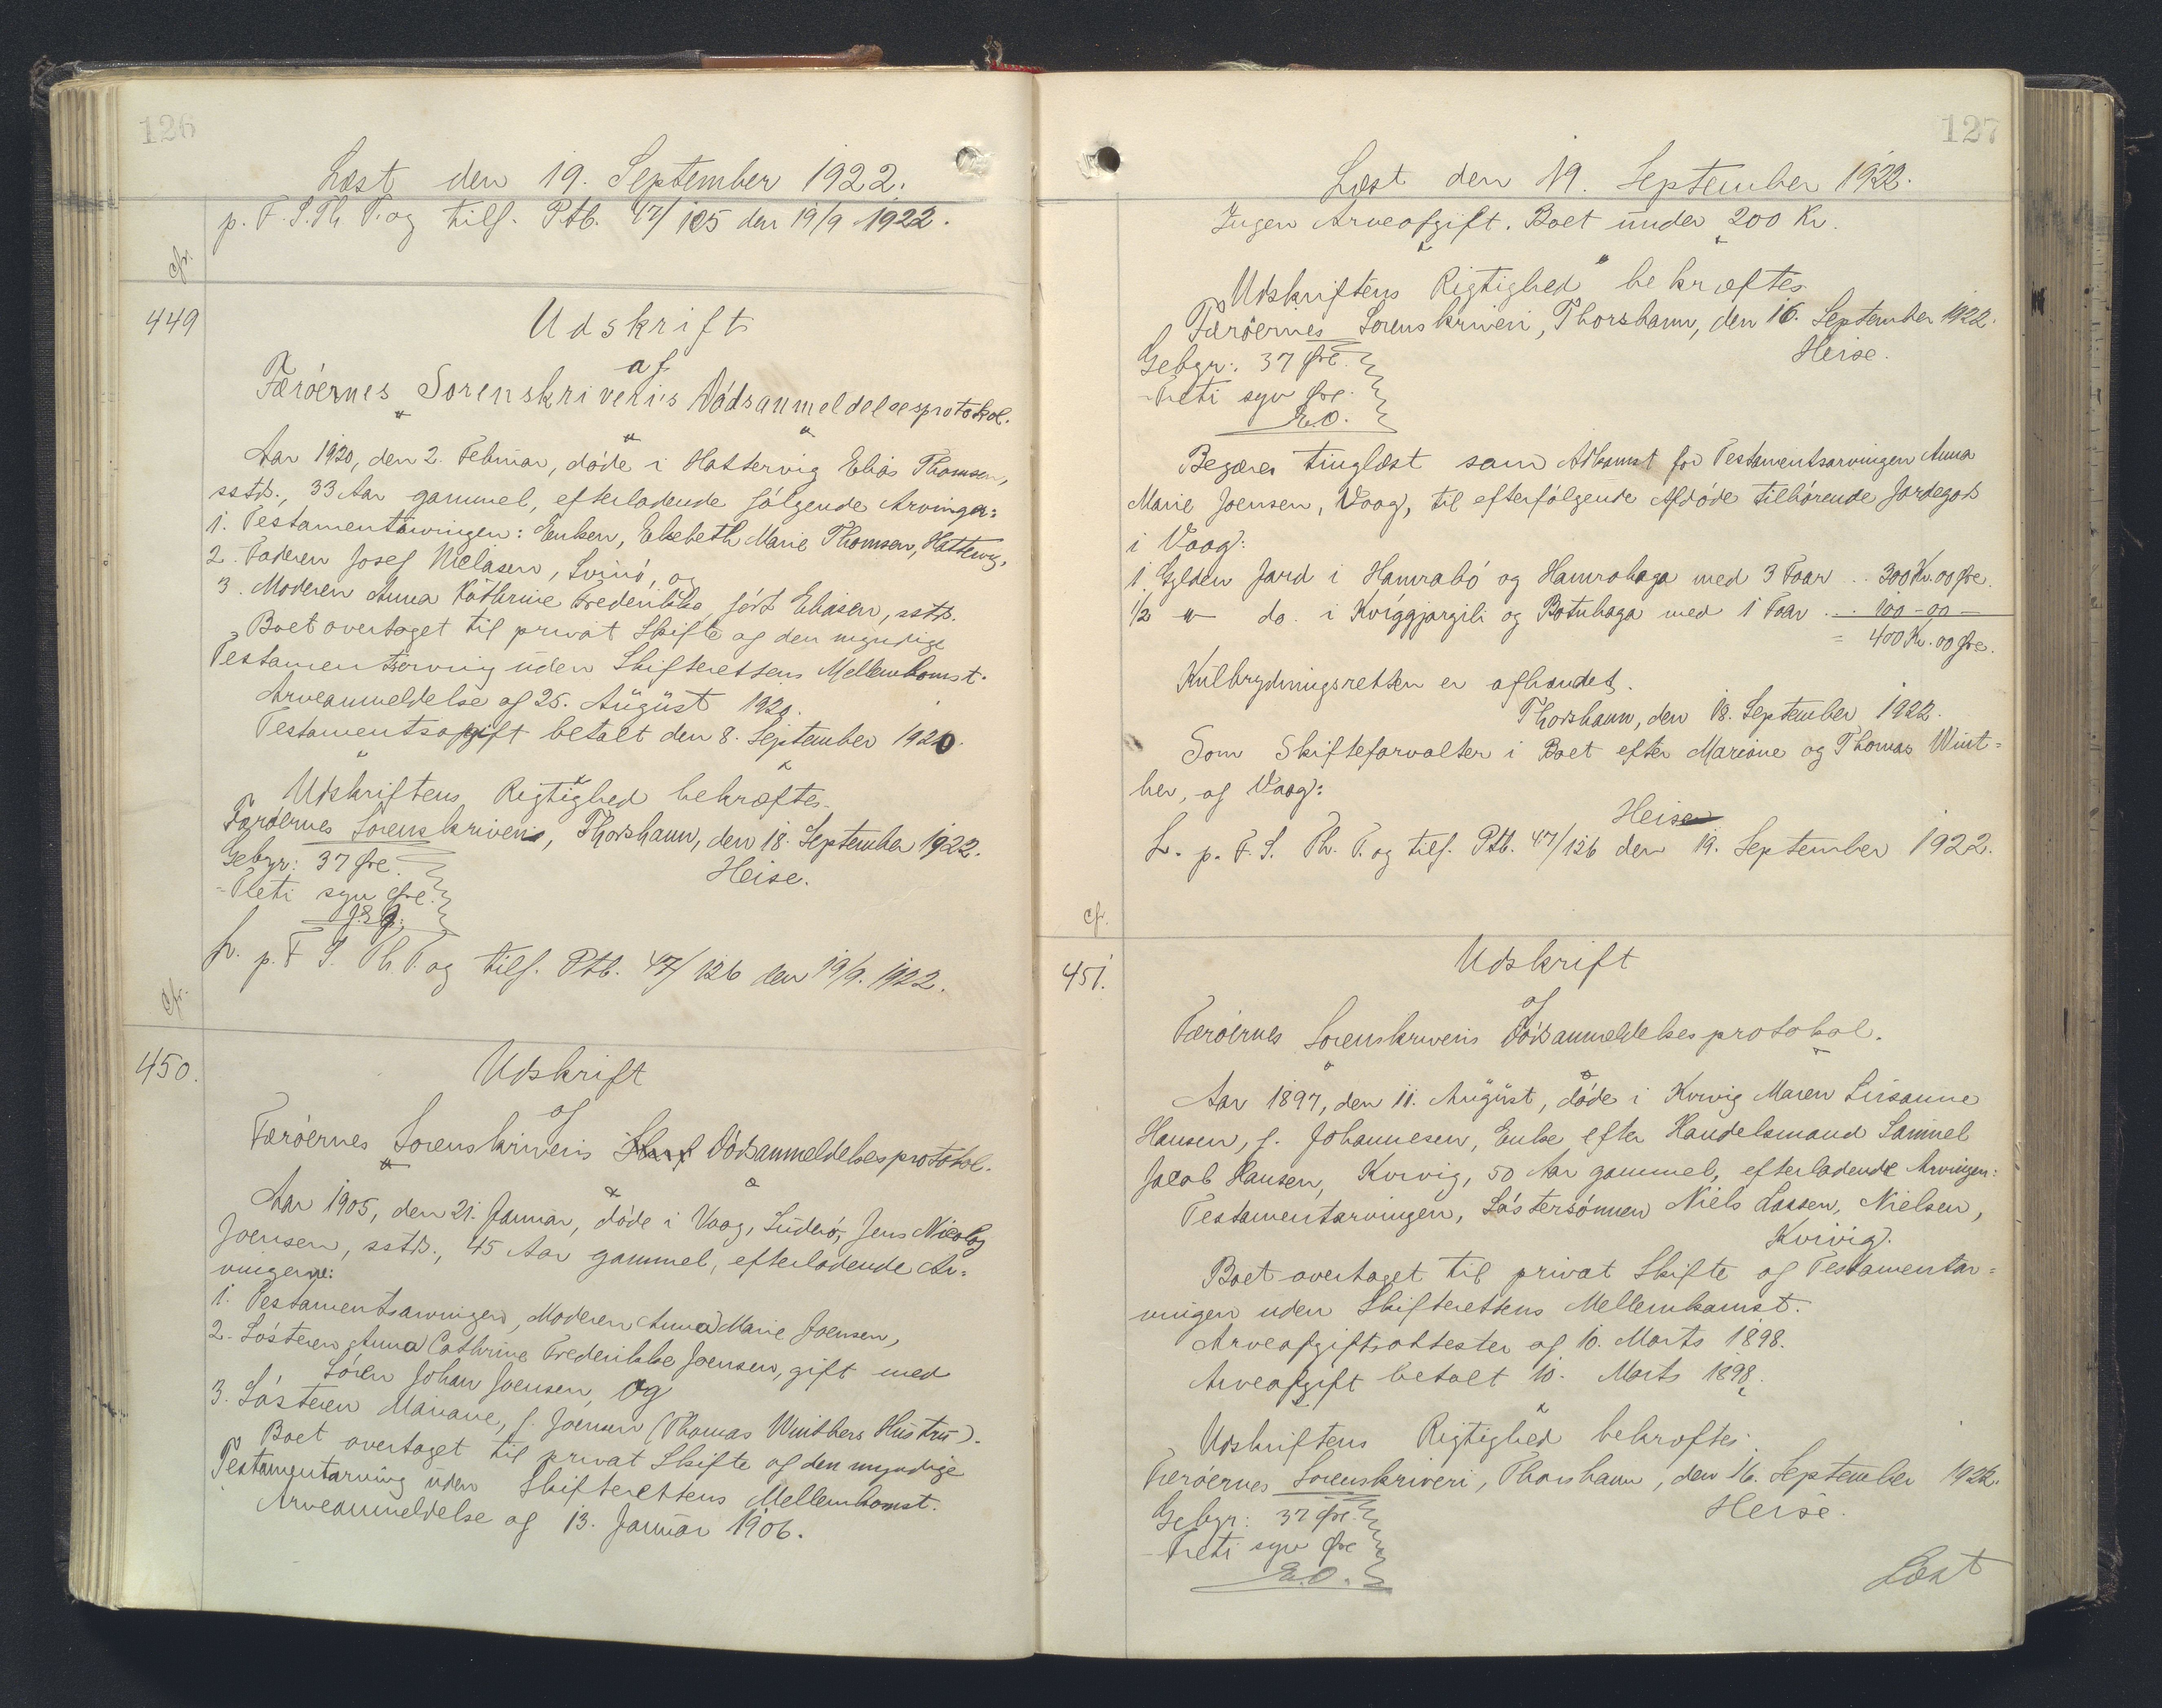 126
Læst den 19. September 1922.
p. F. S. Th. T. og tilf. Ptb. 47/105 den 19/9 1922.
cfr.
449
Udskrift
af
Færöernes Sorenskriveris Dódsanmeldelsesprotokol.
Aar 1920, den 2. Februar, döde i Hattervig Elias Thomsen,
sstds., 33 Aar gammel, efterladende fölgende Arvinger:
1. Testamentarvingen: Enken, Elsebeth Marie Thomsen, Hattervig,
2. Faderen Josef Niclasen, Svinö, og
3. Moderen Anna Kathrine Frederikke, född Eliasen, sstds.
Boet overtaget til privat Skifte af den myndige
Testamentsarving uden Skifterettens Mellemkomst.
Arveanmeldelse af 25. August 1920.
Testamentsafgift betalt den 8. September 1920.
Udskriftens Rigtighed bekræftes.
Færöernes Sorenskriveri, Thorshavn, den 18. September 1922.
Gebyr: 37 Øre.
Heise.
- Treti syv Øre.
L. p. F. S. Th. T. og tilf. Ptb. 47/126 den 19/9. 1922.
cfr.
450.
Udskrift
af
Færöernes Sorenskriveris Dödsanmeldelsesprotokol.
Aar 1905, den 21. Januar, döde i Vaag, Suderö, Jens Nicolaj
Joensen, sstds., 45 Aar gammel, efterladende Ar=
vingerne:
1. Testamentsarvingen, Moderen Anna Marie Joensen,
2. Sösteren Anna Cathrine Frederikke Joensen, gift med
Sören Johan Joensen, og
3. Sösteren Mariane, f. Joensen (Thomas Winthers Hustru).
Boet overtaget til privat Skifte af den myndige
Testamentarving uden Skifterettens Mellemkomst.
Arveanmeldelse af 13. Januar 1906.
127
Læst den 19. September 1922.
Ingen Arveafgift. Boet under 200 Kr.
Udskriftens Rigtighed bekræftes.
Færöernes Sorenskriveri, Thorshavn, den 16. September 1922.
Gebyr: 37 Øre.
Heise.
- Treti syv Øre.
E.O.
Begæres tinglæst som Adkomst for Testamentsarvingen Anna
Marie Joensen, Vaag, til efterfölgende Afdöde tilhörende Jordegods
i Vaag:
1 Gylden Jord i Hamrabö og Hamrahaga med 3 Faar .. 300 Kr. 00 Øre.
1/2 " do. i Kvíggjargili og Botnhaga med 1 Faar .... 100 - 00 -
= 400 Kr. 00 Øre.
Kulbrydningsretten er afhændet.
Thorshavn, den 18. September 1922.
Som Skifteforvalter i Boet efter Mariane og Thomas Wint=
her, af Vaag:
Heise
L. p. F. S. Th. T. og tilf. Ptb. 47/126 den 19. September 1922.
cfr.
451.
Udskrift
af
Færöernes Sorenskriveris Dödsanmeldelsesprotokol.
Aar 1897, den 11. August, döde i Kvivig Maren Susanne
Hansen, f. Johannesen, Enke efter Handelsmand Samuel
Jacob Hansen, Kvivig, 50 Aar gammel, efterladende Arvingen:
Testamentarvingen, Söstersönnen Niels Lassen, Nielsen,
Kvivig.
Boet overtaget til privat Skifte af Testamentar=
vingen uden Skifterettens Mellemkomst.
Arveafgiftsattester af 10. Marts 1898.
Arveafgift betalt 10. Marts 1898.
Udskriftens Rigtighed bekræftes.
Færöernes Sorenskriveri, Thorshavn, den 16. September 1922.
Gebyr: 37 Øre.
Heise.
- Treti syv Øre
E.O.
Læst